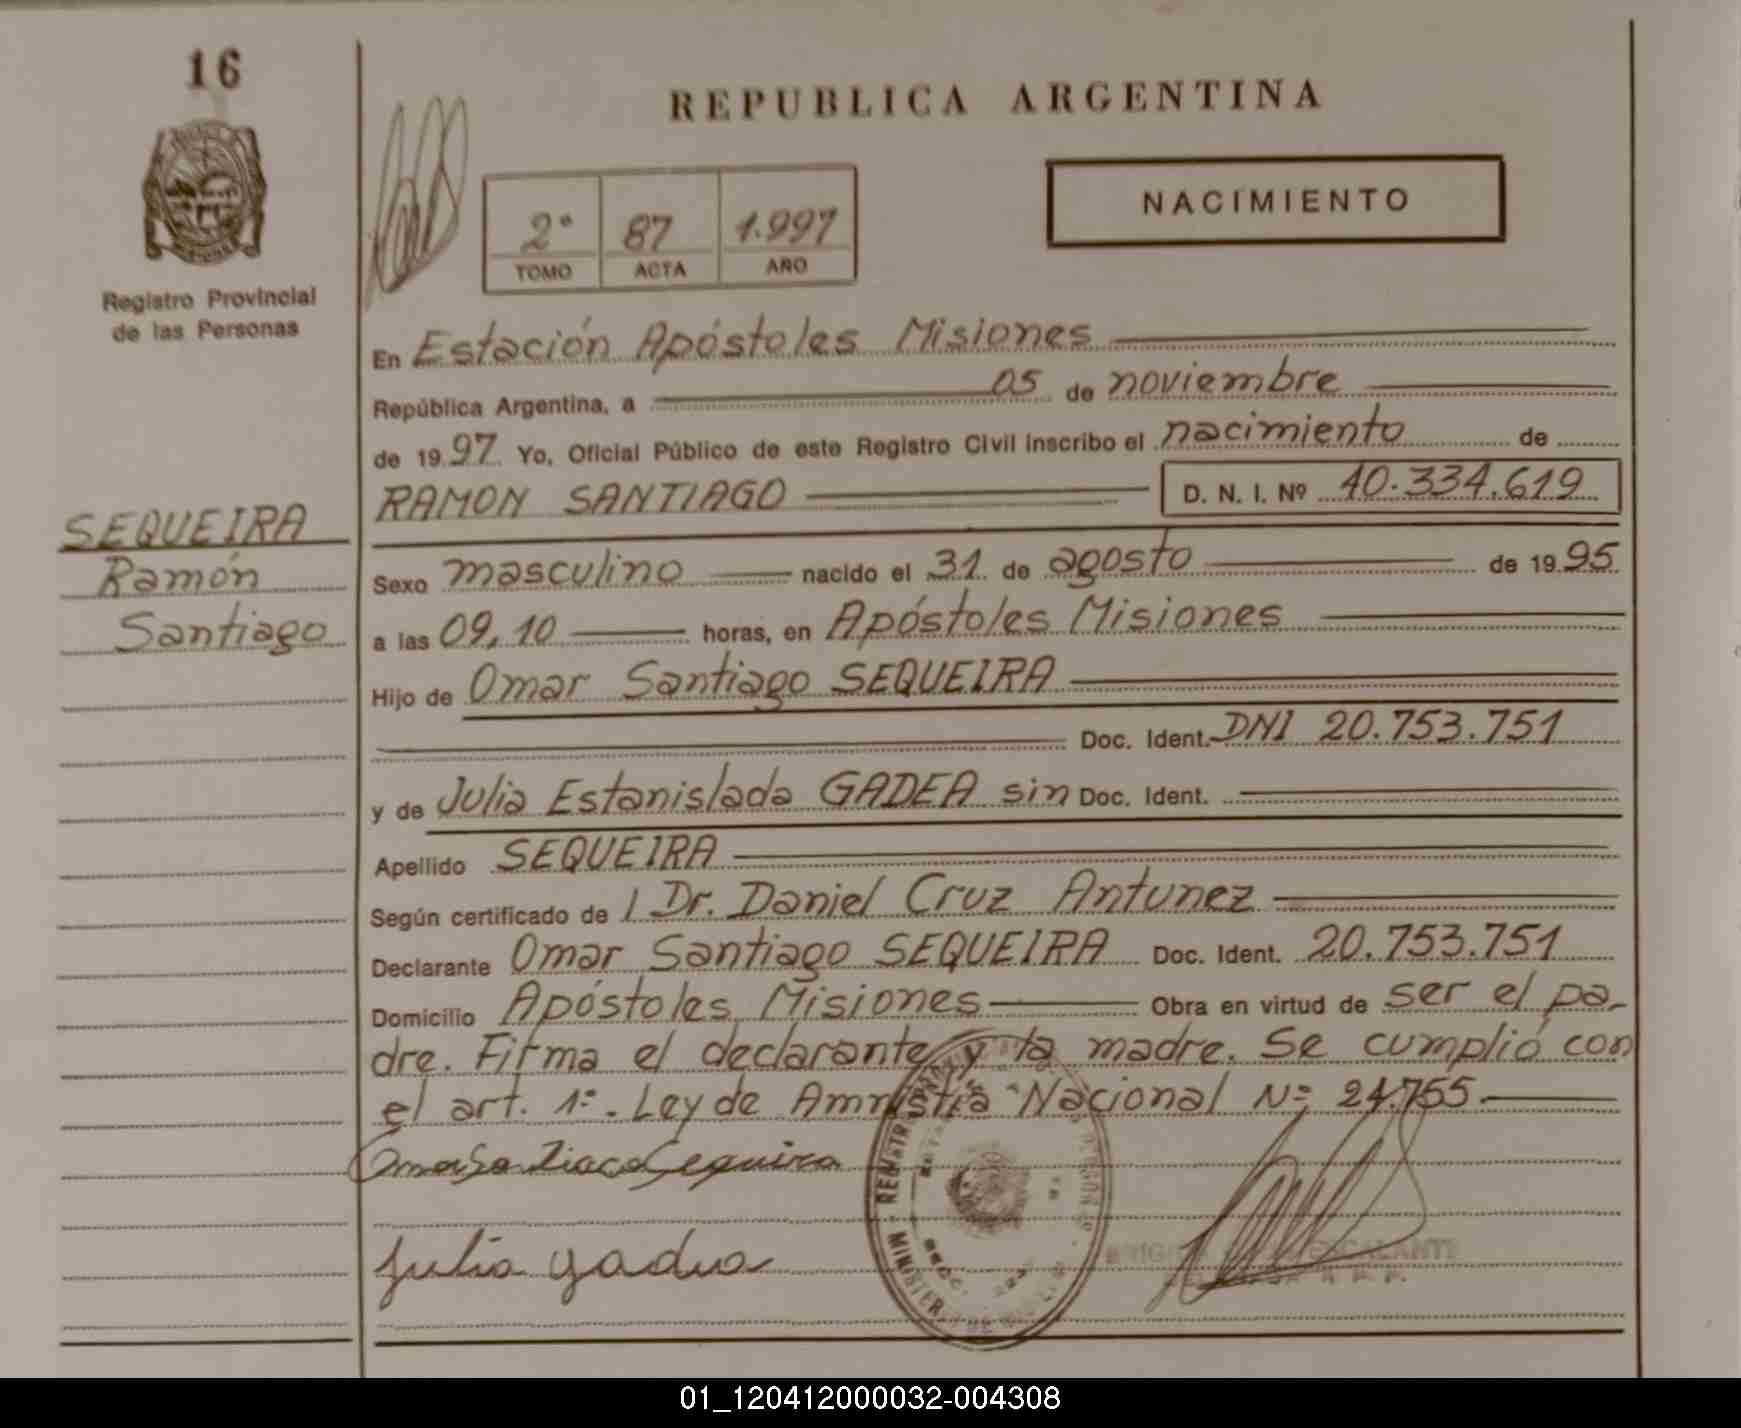 16
REPUBLICA ARGENTINA
NACIMIENTO
2° 87 1.997
TOMO ACTA AÑO
Registro Provincial
de las Personas
En Estación Apóstoles Misiones
República Argentina, a 05 de noviembre
de 1997 Yo, Oficial Público de este Registro Civil inscribo el nacimiento de
RAMON SANTIAGO D. N. I. Nº 40.334.619
SEQUEIRA
Ramón
Santiago
Sexo masculino nacido el 31 de agosto de 1995
a las 09,10 horas, en Apóstoles Misiones
Hijo de Omar Santiago SEQUEIRA
Doc. Ident. DNI 20.753.751
y de Julia Estanislada GADEA sin Doc. Ident.
Apellido SEQUEIRA
Según certificado de / Dr. Daniel Cruz Antunez
Declarante Omar Santiago SEQUEIRA Doc. Ident. 20.753.751
Domicilio Apóstoles Misiones Obra en virtud de ser el pa-
dre. Firma el declarante y la madre. Se cumplió con
el art. 1º. Ley de Amnistía Nacional Nº 24.755
Omar Santiago Sequeira
Julia gadea
ESCALANTE
01_120412000032-004308